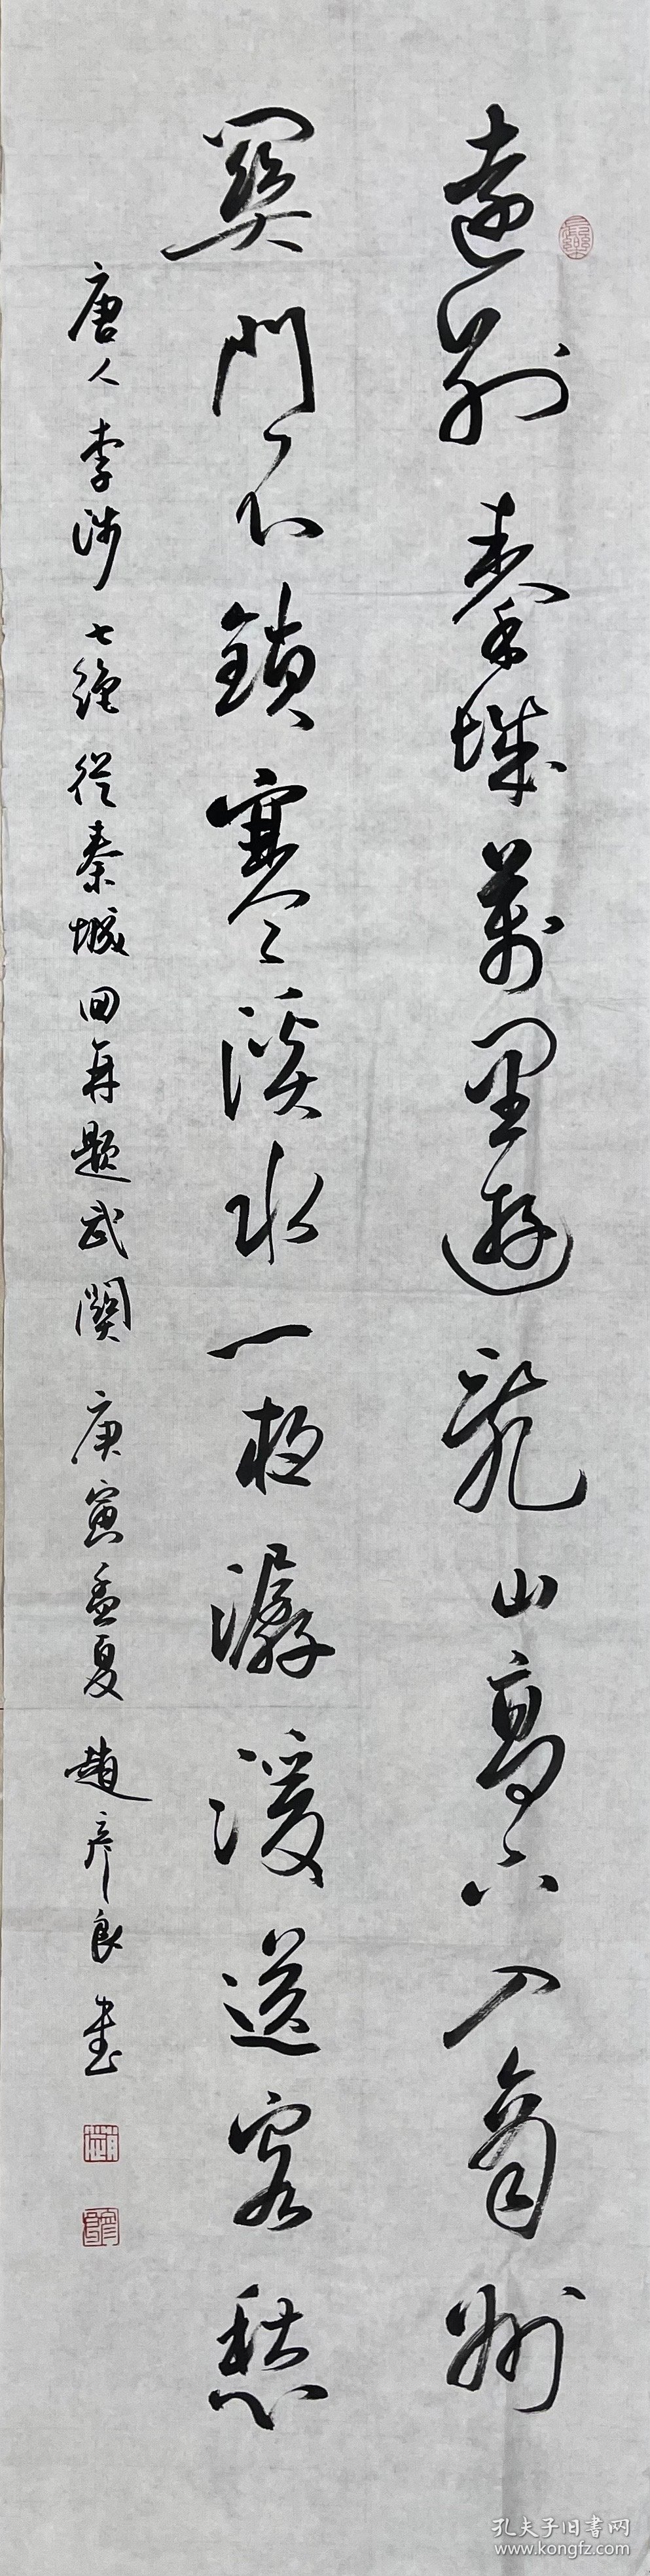 遠別秦城萬里遊亂山高下入商州
關門不鎖寒溪水一夜潺湲送客愁
唐人李涉七絕從秦城回再題武關庚寅孟夏趙彥良書
孔夫子旧書网
www.kongfz.com